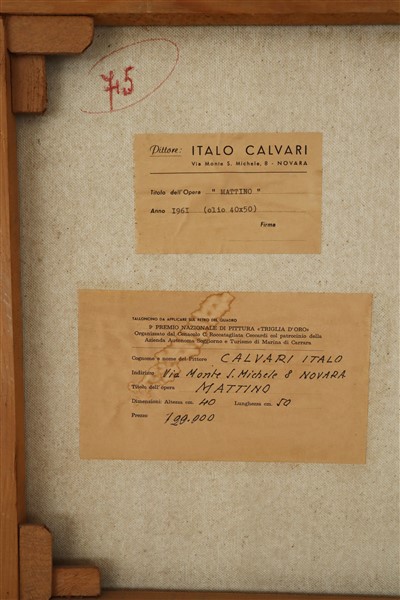 75
Pittore: ITALO CALVARI
Via Monte S. Michele, 8 - NOVARA
Titolo dell'Opera " MATTINO "
Anno I96I (olio 40x50)
Firma
TALLONCINO DA APPLICARE SUL RETRO DEL QUADRO
9° PREMIO NAZIONALE DI PITTURA «TRIGLIA D'ORO»
Organizzato dal Cenacolo C. Roccatagliata Ceccardi col patrocinio della
Azienda Autonoma Soggiorno e Turismo di Marina di Carrara
Cognome e nome del Pittore CALVARI ITALO
Indirizzo Via Monte S. Michele 8 NOVARA
Titolo dell'opera MATTINO
Dimensioni: Altezza cm. 40 Lunghezza cm. 50
Prezzo